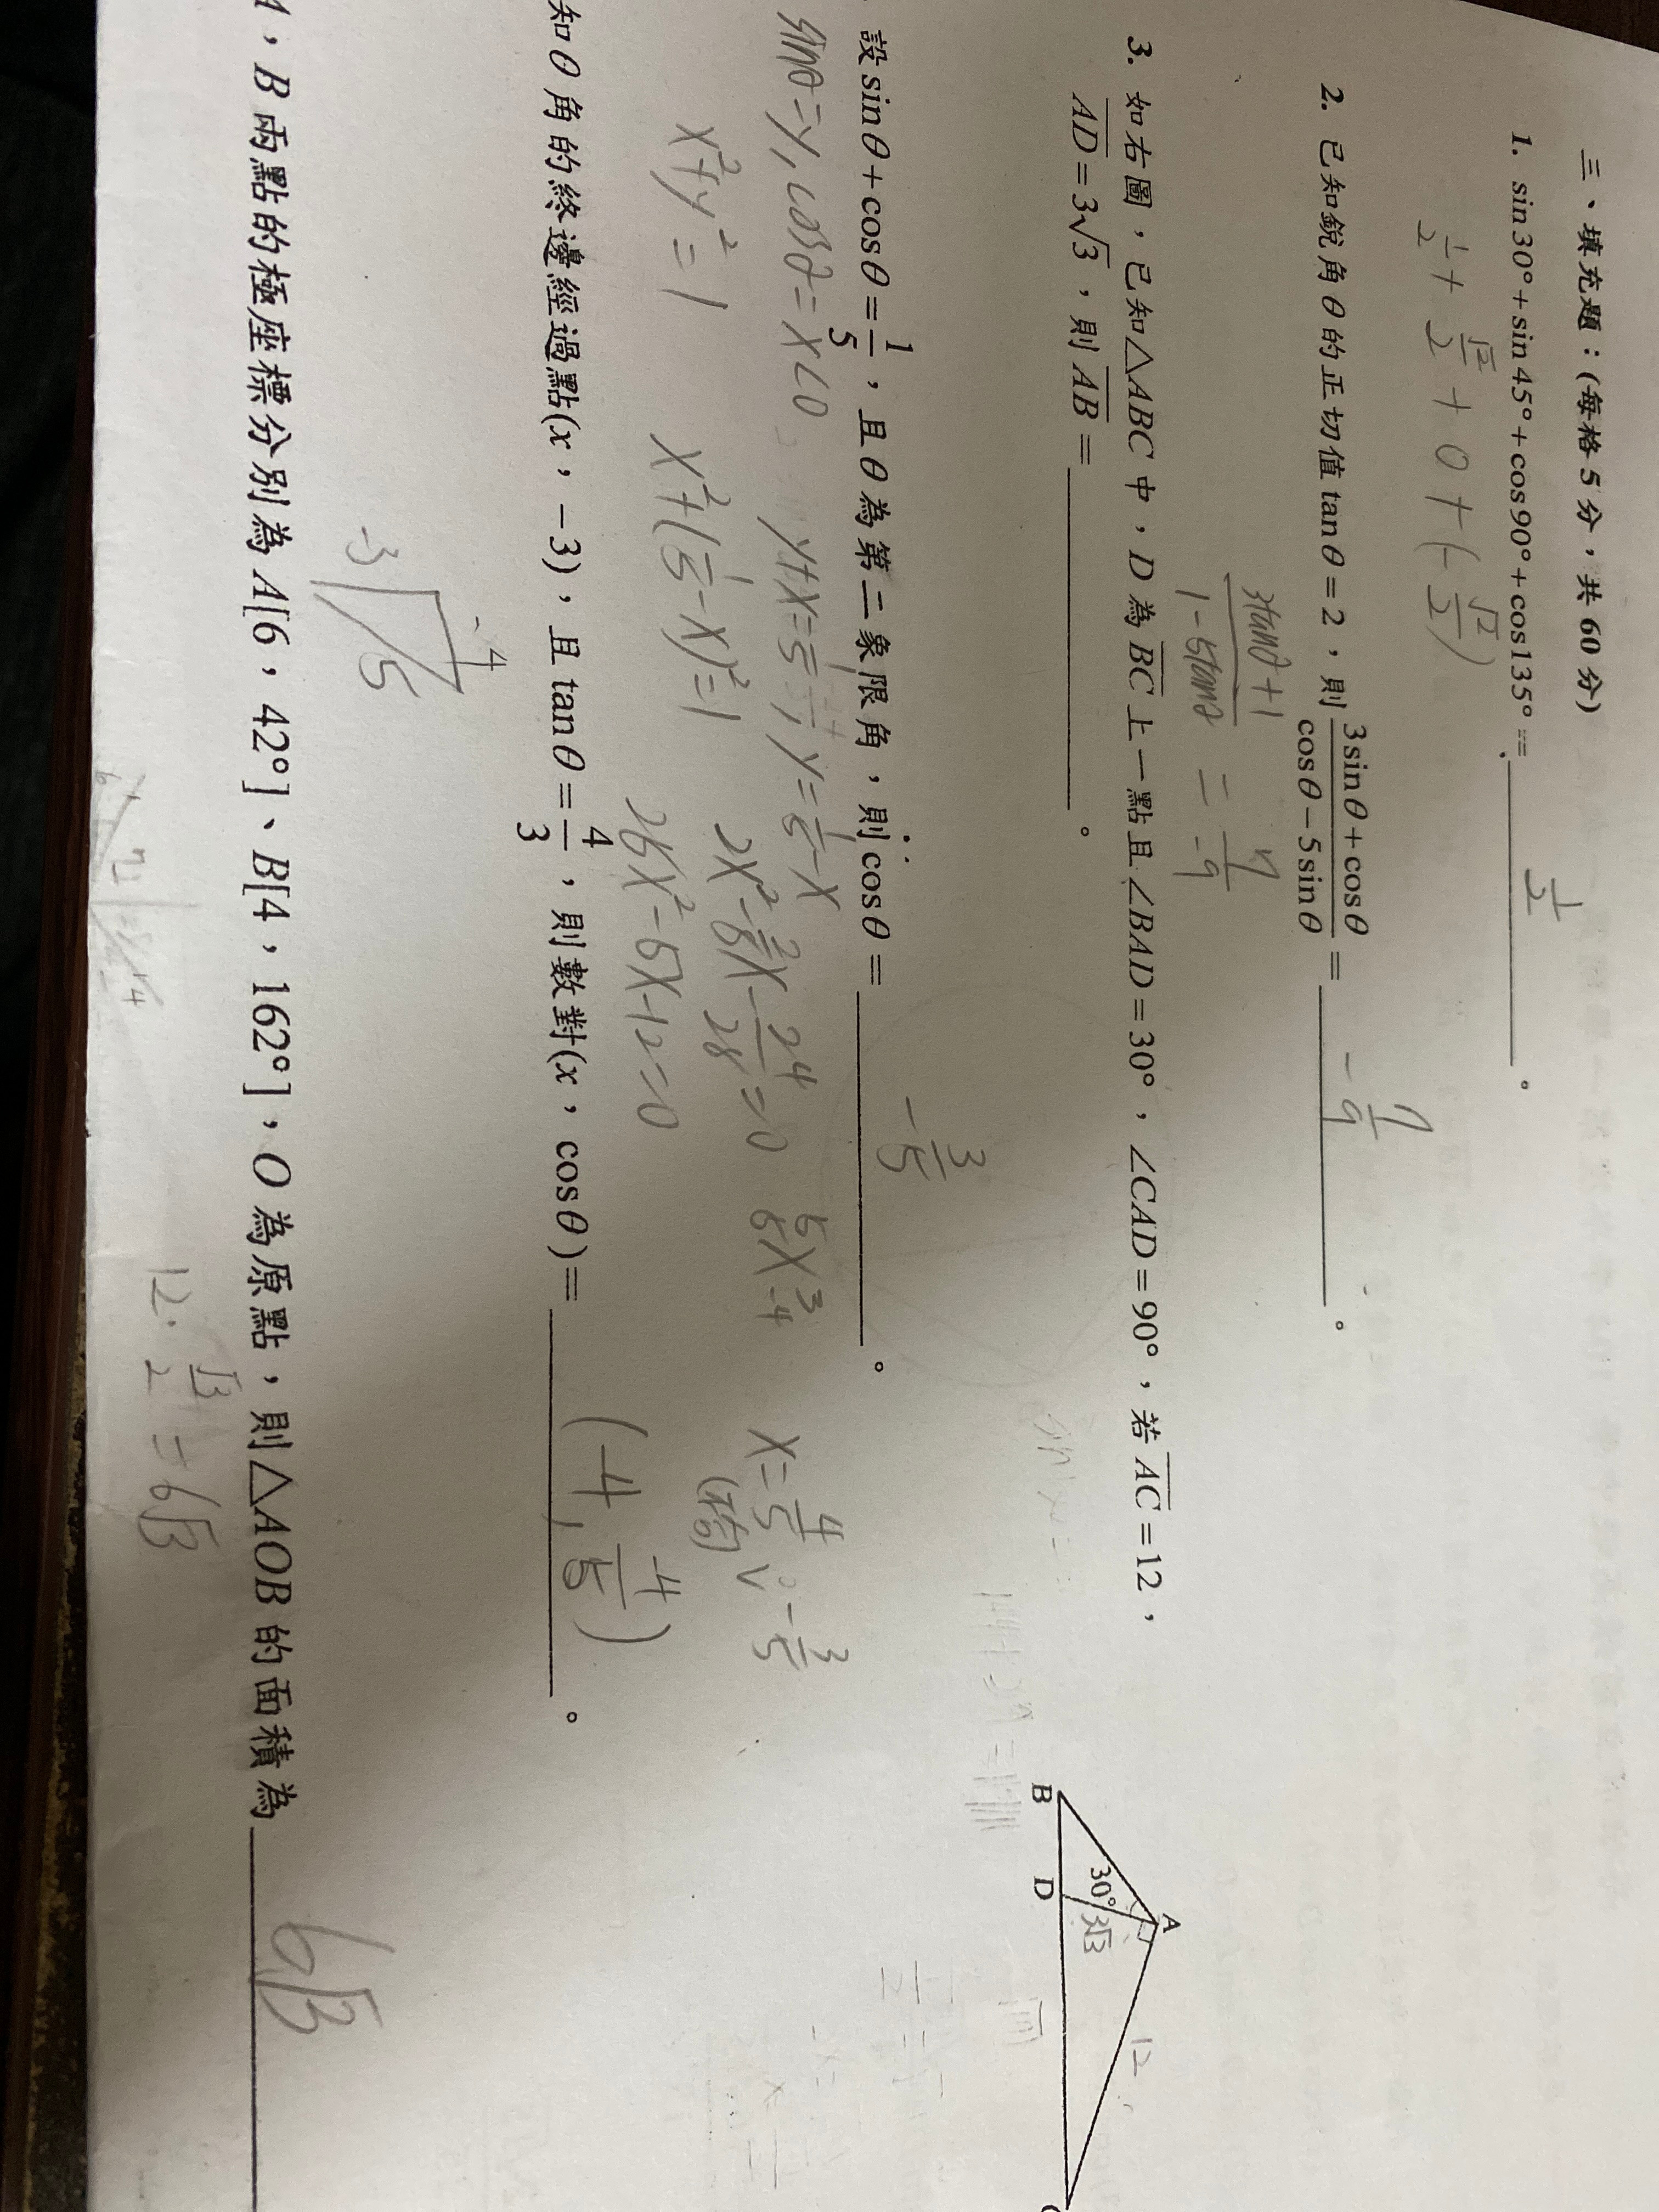 三、填充題：(每格5分，共60分)
1. sin30°+sin45°+cos90°+cos135°= 1/2 。
1/2 + √2/2 + 0 + (-√2/2)
2. 已知銳角θ的正切值tanθ=2，則 (3sinθ+cosθ)/(cosθ-5sinθ) = -7/9 。
(3tanθ+1)/(1-5tanθ) = 7/-9
3. 如右圖，已知△ABC中，D為BC上一點且∠BAD=30°，∠CAD=90°，若AC=12，
AD=3√3，則AB= 。
A
30°
3√3
12
B
D
設sinθ+cosθ=1/5，且θ為第二象限角，則cosθ= -3/5 。
sinθ=y, cosθ=x<0
y+x=1/5, y=1/5-x
x²+y²=1
x²+(1/5-x)²=1
2x²-2/5x-24/25=0
25x²-5x-12=0
5 3
5 -4
x=4/5 ∨ -3/5
知θ角的終邊經過點(x，-3)，且tanθ=4/3，則數對(x，cosθ)= 
-4
-3
5
，B兩點的極座標分別為A[6，42°]、B[4，162°]，O為原點，則△AOB的面積為 6√3
12·√3/2=6√3